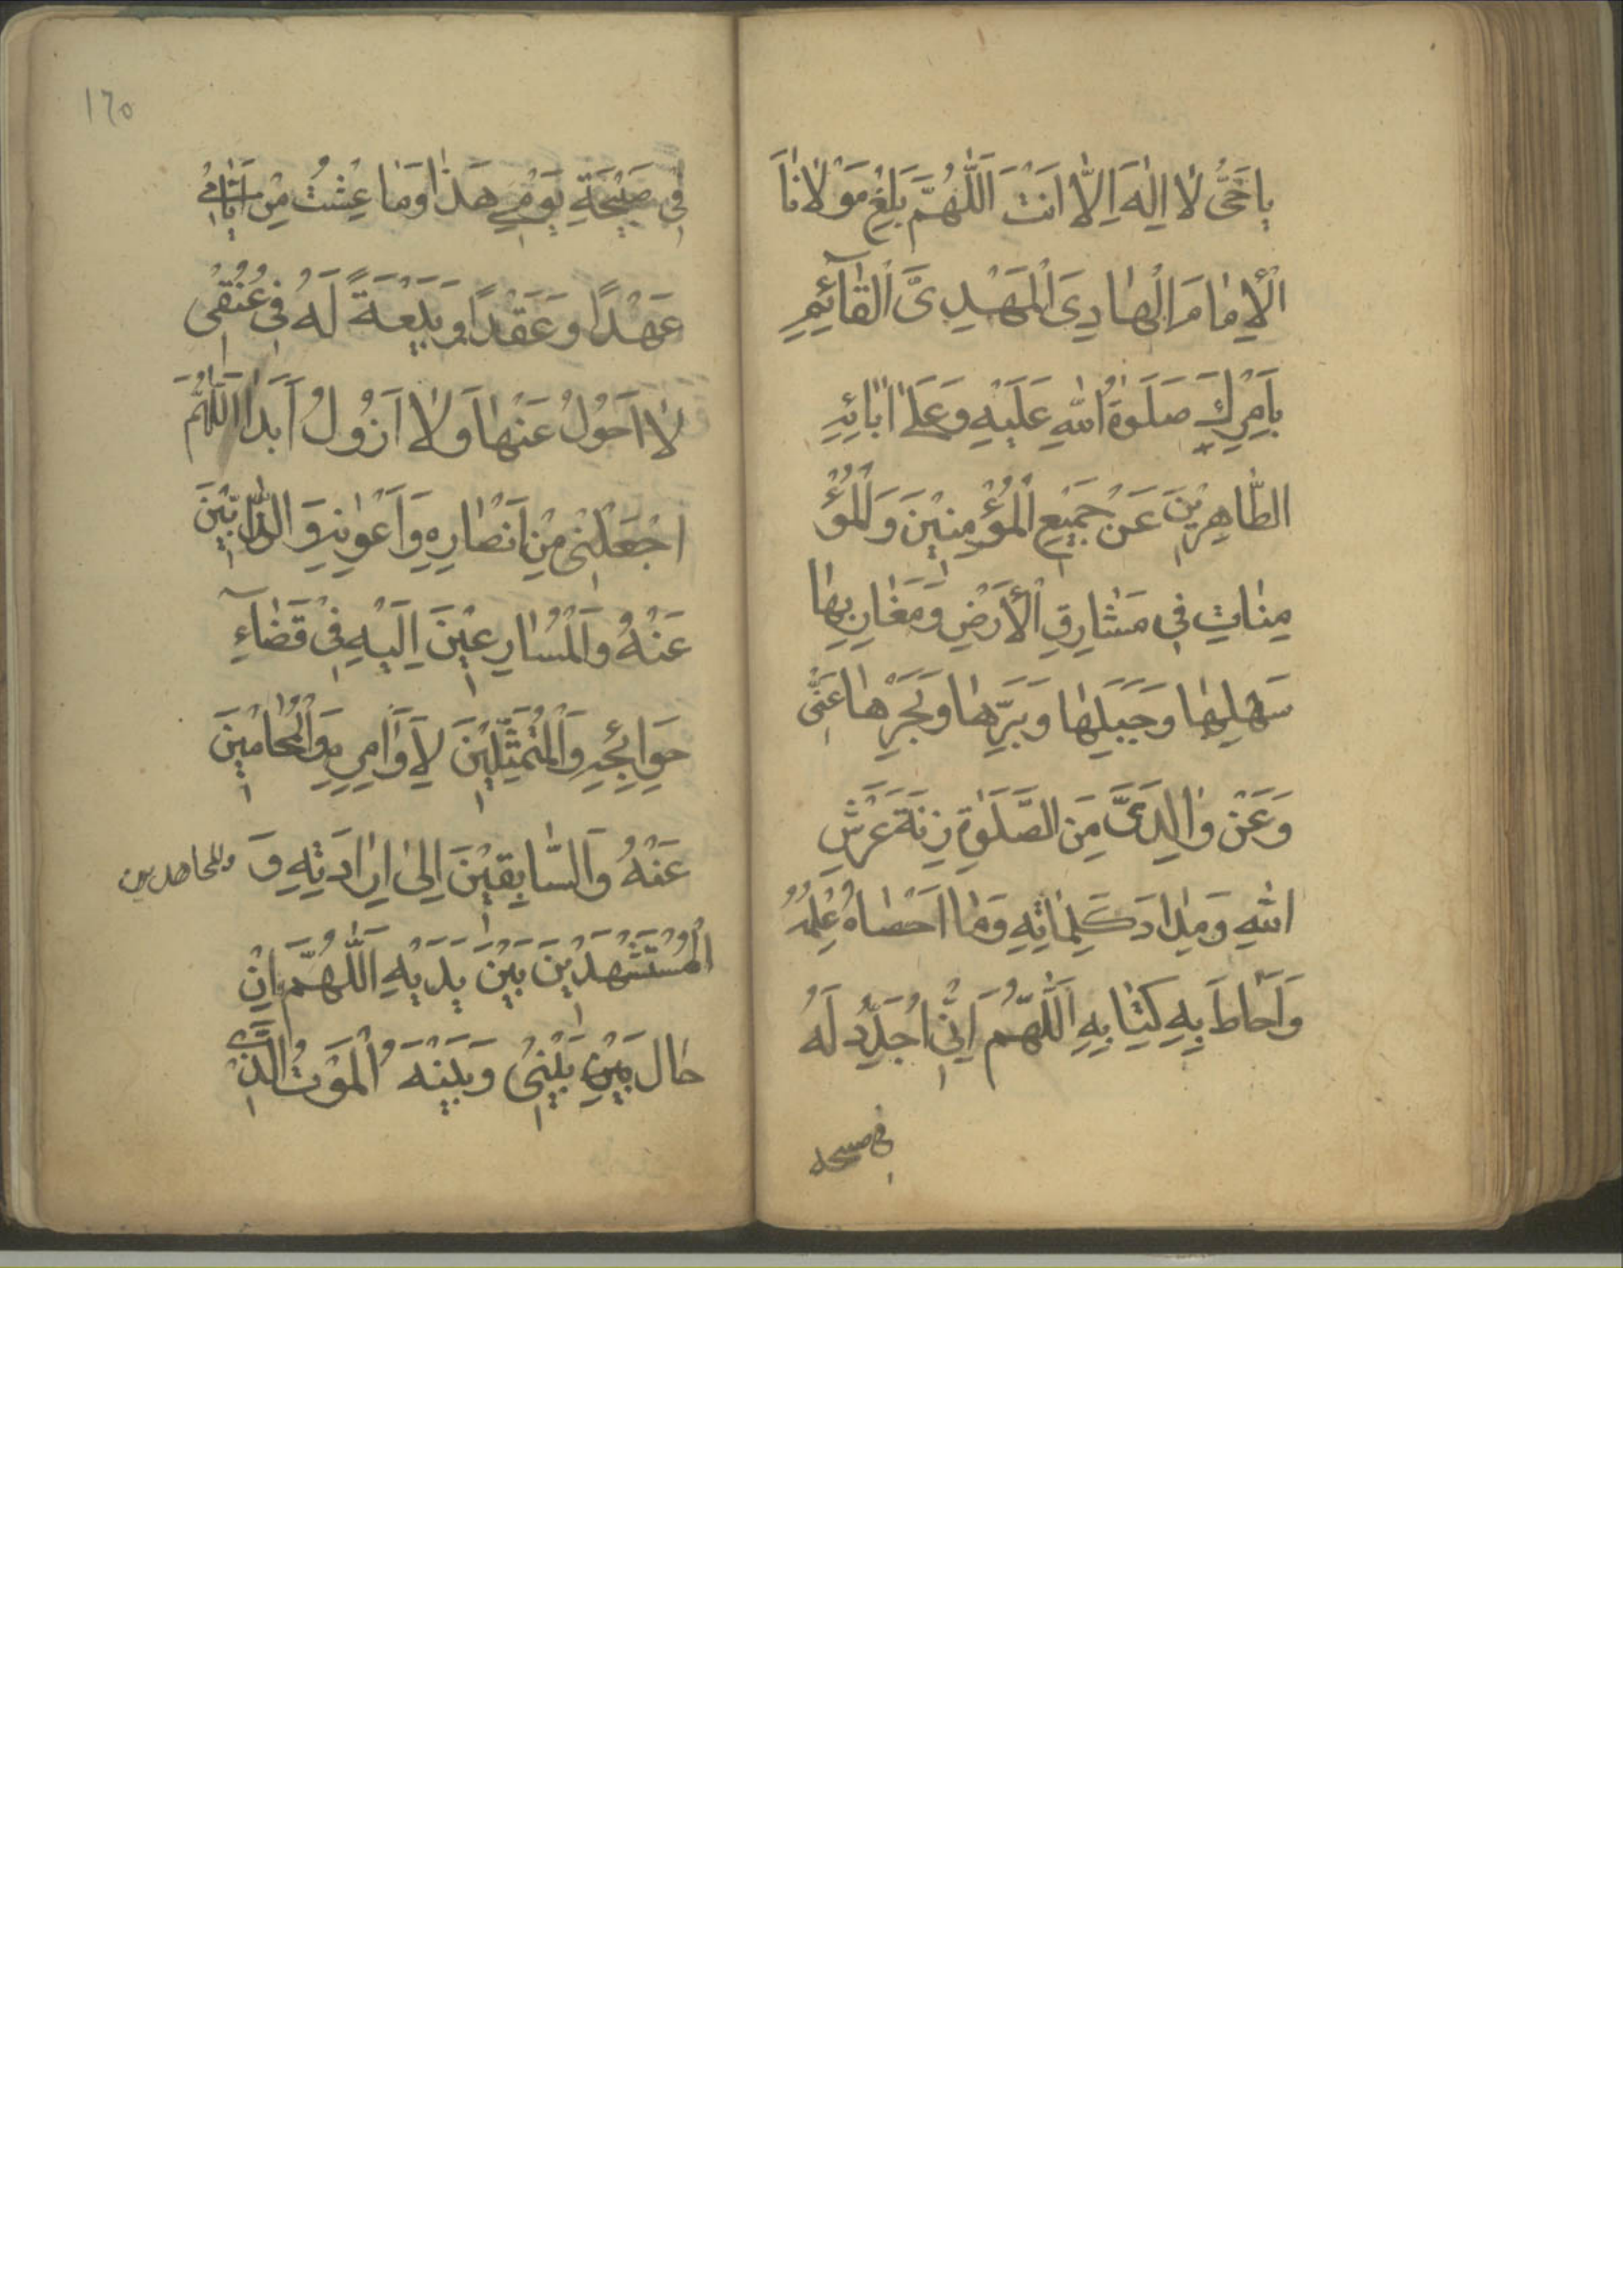 يا حَىُّ لا اِلٰهَ اِلاّ اَنْتَ اَللّٰهُمَّ بَلِّغْ مَوْلانَا
الْاِمامَ الْهادِىَ الْمَهْدِىَّ الْقآئِمَ
بِاَمْرِكَ صَلَوٰةُ اللّٰهِ عَلَيْهِ وَعَلىٰ ابائِهِ
الطّاهِرِيْنَ عَنْ جَمِيْعِ الْمُؤْمِنِيْنَ وَالْمُؤْ
مِناتِ فِي مَشارِقِ الْاَرْضِ وَمَغارِبِها
سَهْلِها وَجَبَلِها وَبَرِّها وَبَحْرِها عَنّى
وَعَنْ والِدَىَّ مِنَ الصَّلَوٰةِ زِنَةَ عَرْشِ
اللّٰهِ وَمِدادَ كَلِماتِهِ وَما اَحْصاهُ عِلْمُهُ
وَاَحاطَ بِهِ كِتابِهِ اَللّٰهُمَّ اِنّى اُجَدِّدُ لَهُ
فى صبيحة
١٦٥
فِى صَبِيْحَةِ يَوْمِي هٰذا وَما عِشْتُ مِنْ اَيّامِي
عَهْدًا وَعَقْدًا وَبَيْعَةً لَهُ فِى عُنُقِى
لا اَحُوْلُ عَنْها وَلا اَزُوْلُ اَبَدا اَللّٰهُمَّ
اجْعَلْنِى مِنْ اَنْصارِهِ وَاَعْوانِهِ وَالذّابِّيْنَ
عَنْهُ وَالْمُسارِعِيْنَ اِلَيْهِ فِىْ قَضآءِ
حَوائِجِهِ وَالْمُتَمَثِّلِيْنَ لِاَوامِرِهِ وَالْمُحامِيْنَ
عَنْهُ وَالسّابِقِيْنَ اِلىٰ اِرادَتِهِ وَ
والمجاهدين
الْمُسْتَشْهَدِيْنَ بَيْنَ يَدَيْهِ اَللّٰهُمَّ اِنْ
حالَ بَيْنِ بَيْنِىْ وَبَيْنَهُ الْمَوْتُ الَّذِىْ